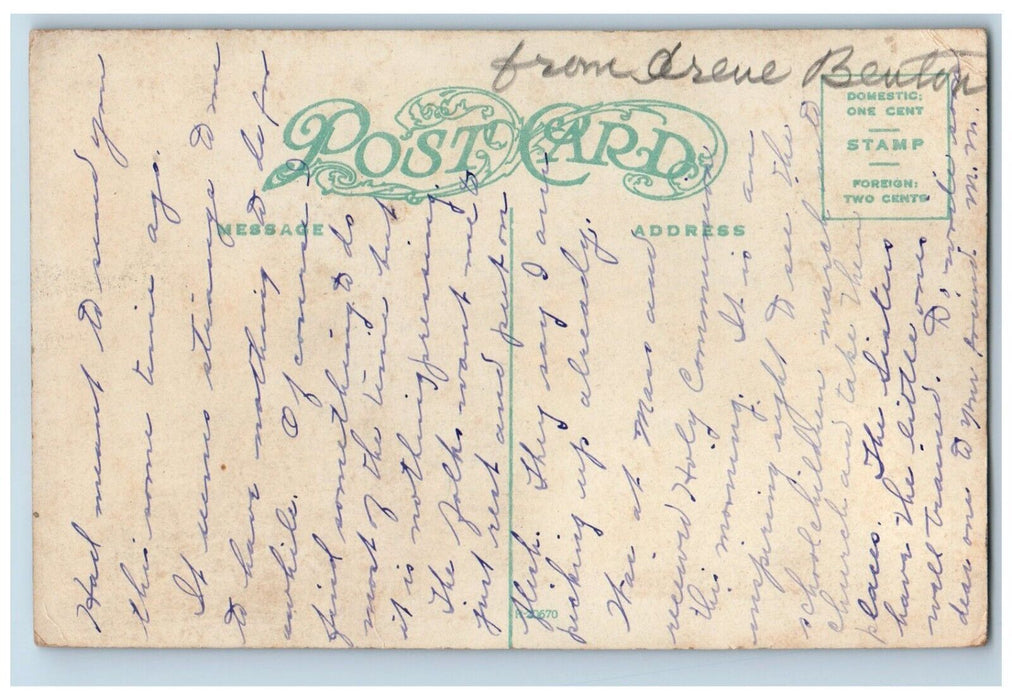 from Irene Benton
POST CARD
DOMESTIC:
ONE CENT
STAMP
FOREIGN:
TWO CENTS
MESSAGE
ADDRESS
R-20670
Had meant to send you
this some time ago.
It seems strange to me
to have nothing to do for
awhile. Of course I
find something to do
most of the time but
it is nothing pressing.
The folks want me to
just rest and put on
flesh. They say I am
picking up already.
Was at Mass and
received Holy Communion
this morning. It is an
inspiring sight to see the
school children march to
church and take their
places. The Sisters
have the little ones
well trained. Do write soon
dear one to your friend. M. M.